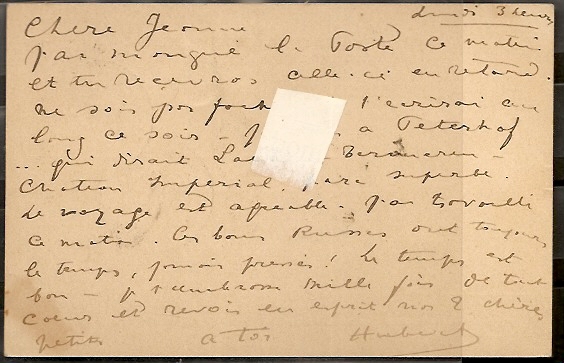 lundi 3 heures
Chère Jeanne
J'ai manqué la Poste ce matin
et tu recevras celle-ci en retard.
ne sois pas t'ecrirai au
long ce soir - a Peterhof
... qui dirait
Chateau Imperial, parc superbe.
Le voyage est agreable. J'ai travaillé
ce matin. Ces bons Russes ont toujours
le temps, jamais pressés! Le temps est
bon - je t'embrasse mille fois de tout
coeur et revois en esprit nos 2 chères
petites a toi Hubert